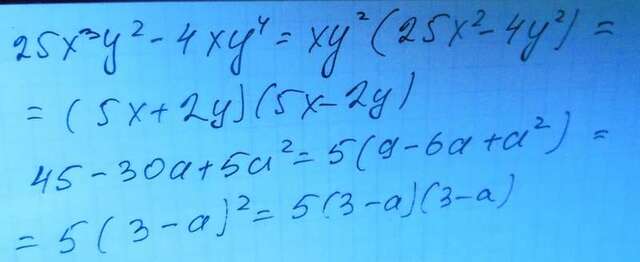 25x³y² - 4xy⁴ = xy² (25x² - 4y²) =
= (5x + 2y)(5x - 2y)
45 - 30a + 5a² = 5(9 - 6a + a²) =
= 5(3 - a)² = 5(3 - a)(3 - a)